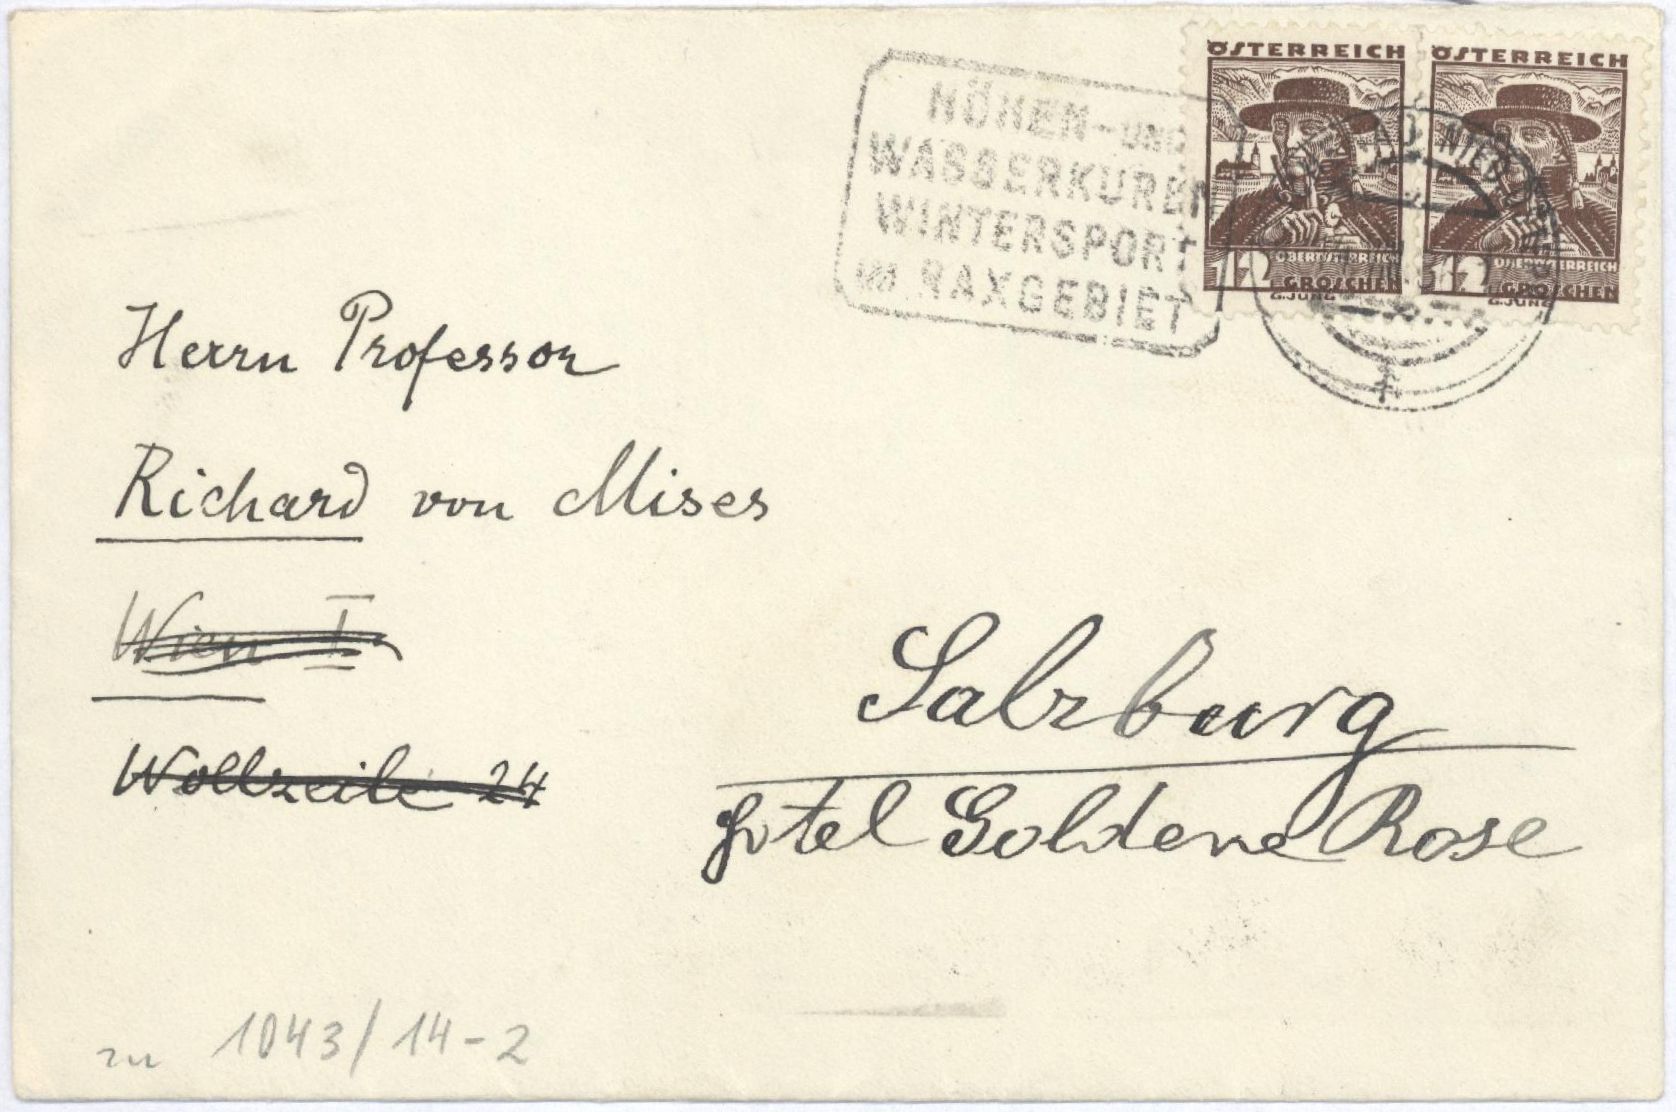 HÖHEN- UND
WASSERKUREN
WINTERSPORT
IM RAXGEBIET
ÖSTERREICH
OBERÖSTERREICH
12 GROSCHEN
G.JUNG
ÖSTERREICH
OBERÖSTERREICH
12 GROSCHEN
G.JUNG
Herrn Professor
Richard von Mises
Wien I.
Wollzeile 24
Salzburg
Hotel Goldene Rose
zu 1043/14-2